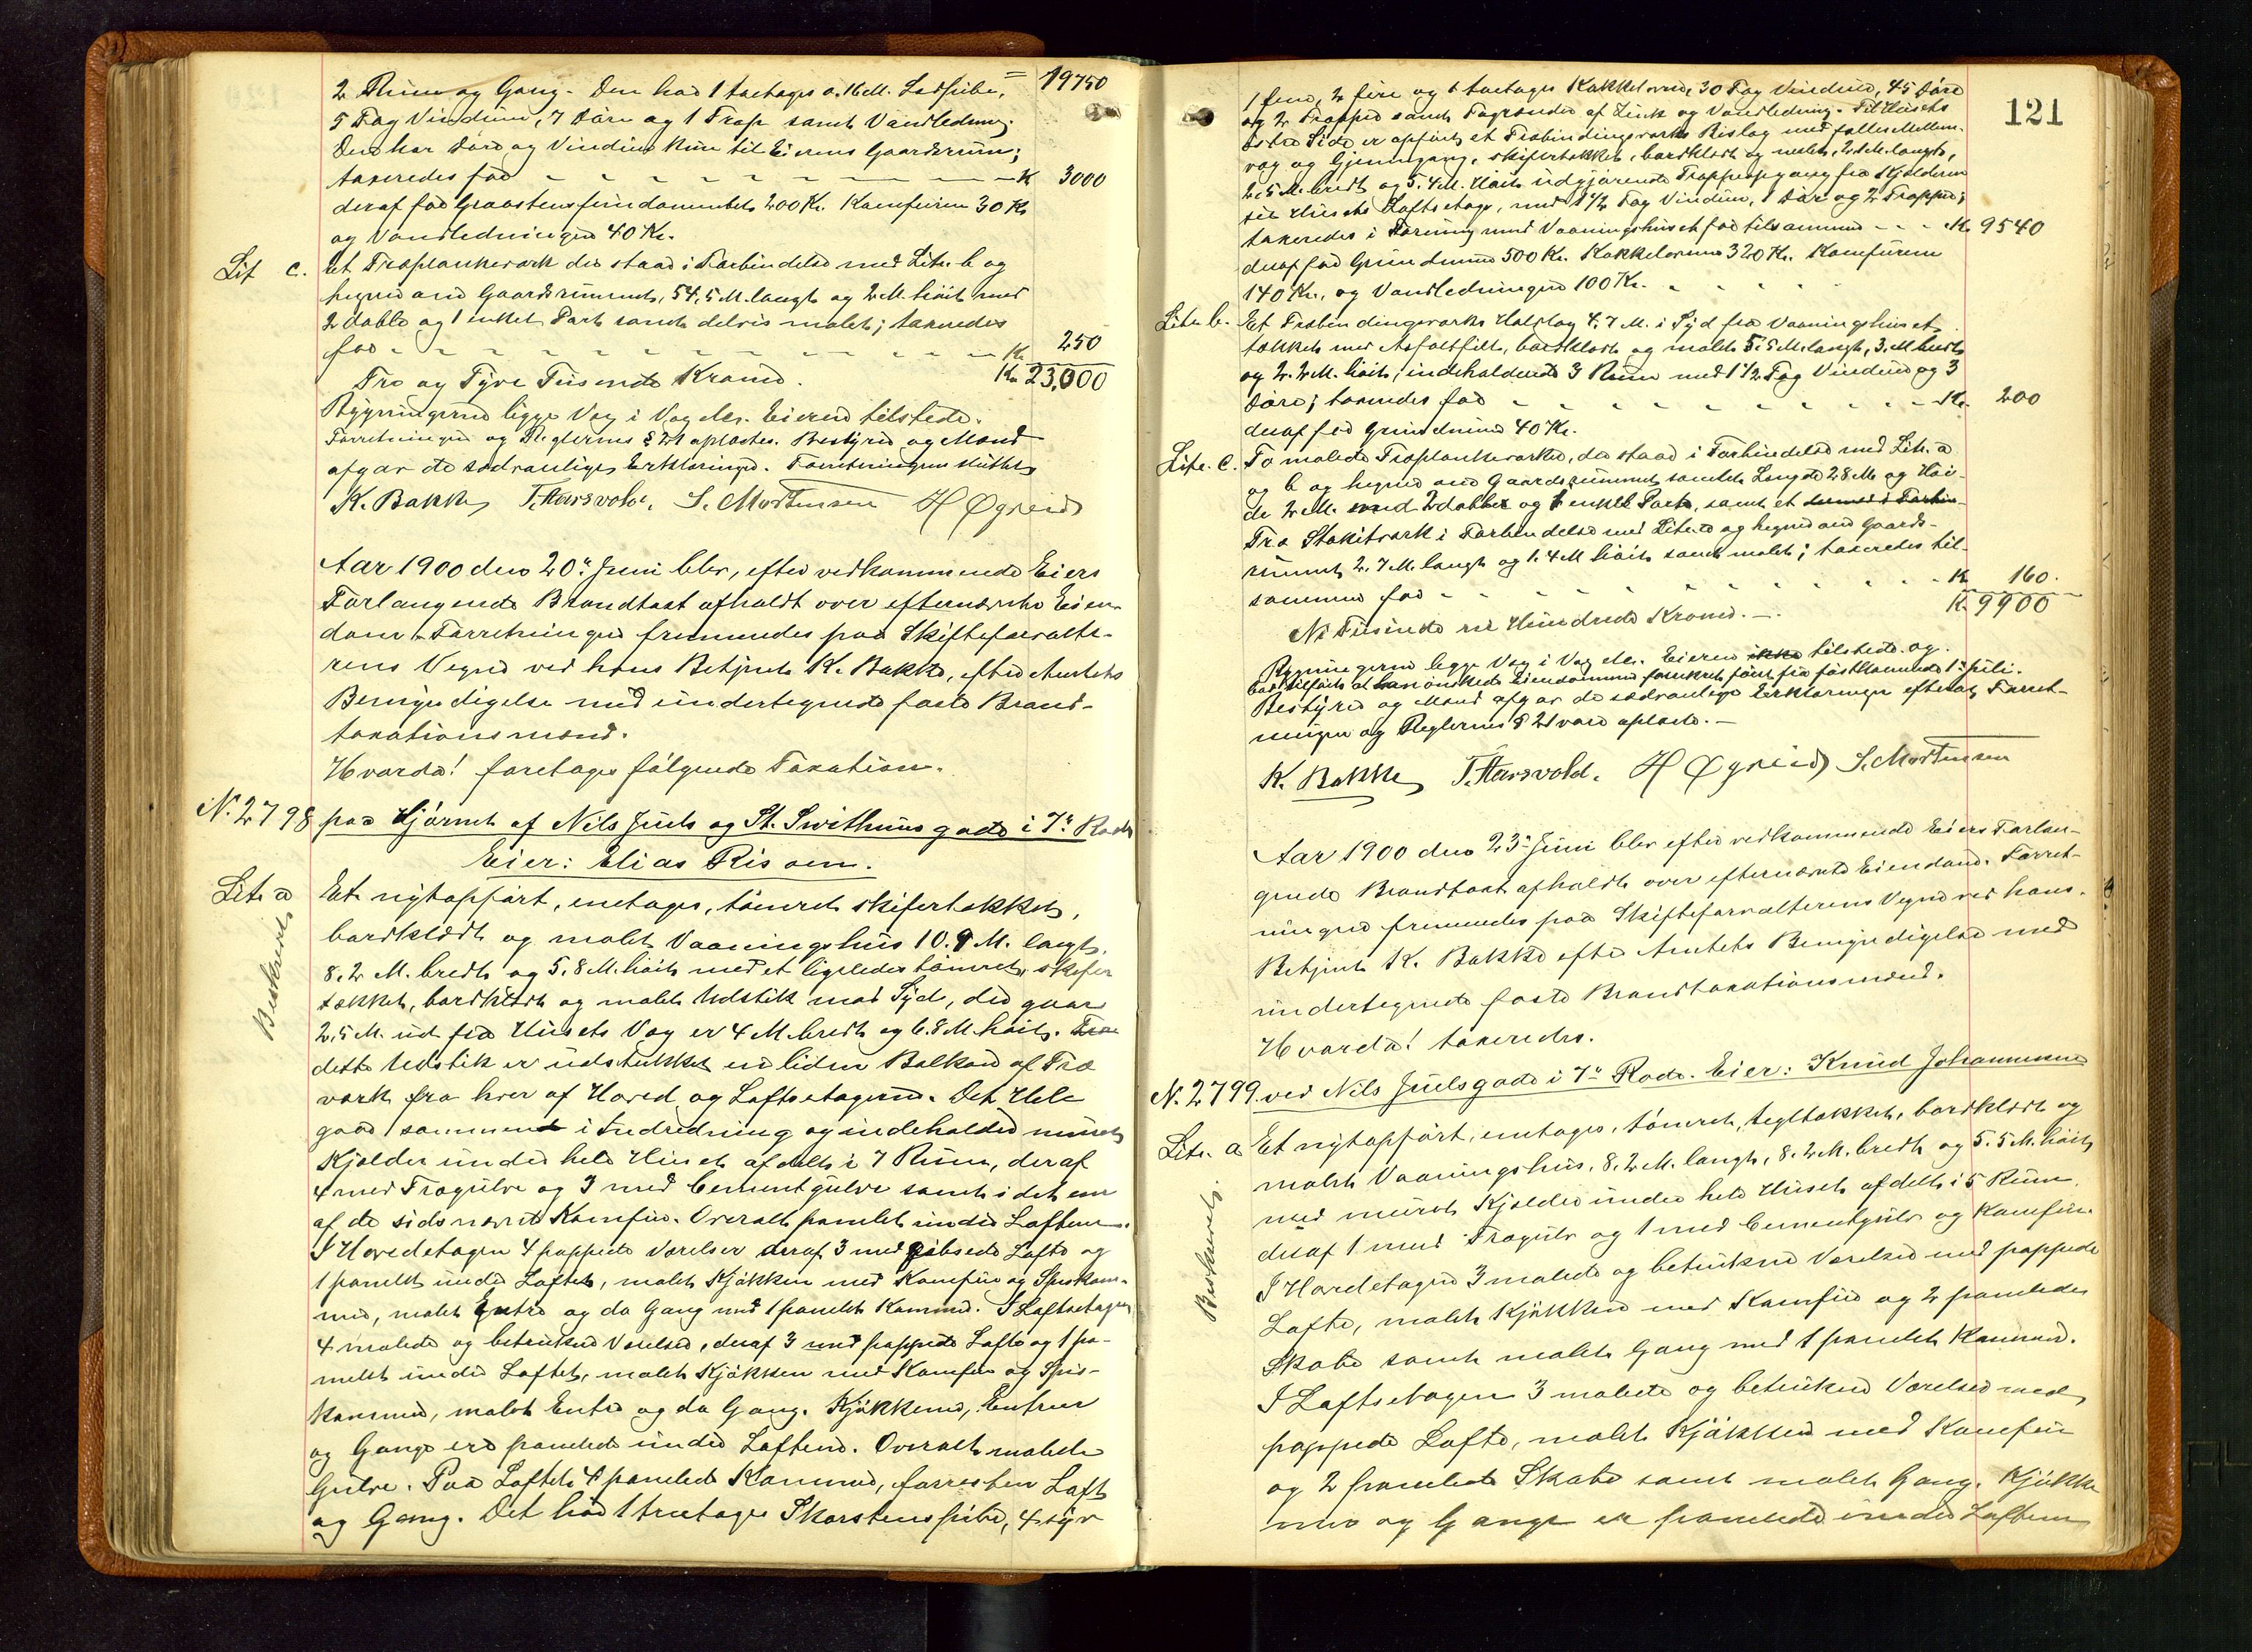 2 Rum og Gang. Den har 1 toetages o. 16 M. Ledpibe, = 19750
5 Fag Vinduer, 7 Döre og 1 Trap samt Vandledning.
Den har Döre og Vinduer kun til Eierens Gaardsrum;
taxeredes for - - - - - - - - Kr 3000
deraf for Graastensfundamentet 200 Kr. Komfuren 30 Kr
og Vandledningen 40 Kr.
Lit c. Et Træplankeværk der staar i Forbindelse med Litr. b og
hegner om Gaardsrummet, 54,5 M. langt og 2 M. höit med
2 doble og 1 enkel Port samt delvis malet; taxeredes
for - - - - - - - - - - - Kr 250
Tre og Tyve Tusende Kroner. Kr 23,000
Bygningerne ligge Væg i Væg etc. Eieren tilstede.
Forretningen og Reglernes § 21 oplæstes. Bestyrer og Mænd
afgav de sædvanlige Erklæringer. Forretningen sluttet
K. Bakke T. Haarsvold. S. Mortensen H Øgreid
Aar 1900 den 20de Juni blev, efter vedkommende Eiers
Forlangende Brandtaxt afholdt over efternævnte Eien-
dom. Forretningen fremmedes paa Skifteforvalte-
rens Vegne ved hans Betjent K. Bakke, efter Amtets
Bemyndigelse med undertegnede faste Brand-
taxationsmænd.
Hvorda! foretages fölgende Taxation.
N. 2798 paa Hjörnet af Nils Juels og St. Swithuns gade i 7de Rode
Eier: Elias Risoen.
Litr. a Et nytopfört, enetages, tömret skifertækket,
Beskrevet
bordklædt og malet Vaaningshus 10.9 M. langt,
8.2 M. bredt og 5.8 M. höit med et ligeledes tömret, skifer
tækket, bordklædt og malet Udstik mod Syd, der gaar
2,5 M. ud fra Husets Væg er 4 M. bredt og 6.8 M. höit. Fra
dette Udstik er udstukket en liden Balkon af Træ
værk fra hver af Hoved og Loftsetagerne. Det Hele
gaar sammen i Indredning og indeholder muret
Kjelder under hele Huset afdelt i 7 Rum, deraf
4 med Trægulve og 3 med Cementgulve samt i det ene
af de sidsnævnte Komfur. Overalt panelet under Loftene.
I Hovedetagen 4 pappede Værelser deraf 3 med gibsede Lofte og
1 panelet under Loftet, malet Kjökken med Komfur og Spiskam-
mer, malet Entre og do Gang med 1 panelet Kammer. I Loftsetagen
4 malede og betrukne Værelser, deraf 3 med pappede Lofte og 1 pa-
nelet under Loftet, malet Kjökken med Komfur og Spis-
kammer, malet Entre og do Gang. Kjökkener, Entreer
og Gange ere panelede under Loftene. Overalt malede
Gulve. Paa Loftet 4 panelede Kammer, forresten Loft
og Gang. Det har 1 treetages Skorstenspibe, 4 syv
121
1 fem, 2 fire og 1 toetages Kakkelovne, 30 Fag Vinduer, 45 Döre
og 2 Trapper samt Tagrender af Zink og Vandledning. Til Husets
östre Side er opfört et Træbindingsværks Bislag med fælles Mellem-
væg og Gjennemgang, skifertækket, bordklædt og malet, 2,2 M. langt,
2,5 M. bredt og 5.4 M. höit udgjörende Trappeopgang fra Kjælderen
til Husets Loftsetage, med 1 1/2 Fag Vinduer, 1 Dör og 2 Trapper;
taxeredes i Forening med Vaaningshuset for tilsammen - - - Kr. 9540
deraf for Grundmure 500 Kr. Kakkelovnene 320 Kr. Komfurene
140 Kr. og Vandledningen 100 Kr.
Litr. b. Et Træbindingsværks Halvtag 4.7 M. i Syd fra Vaaningshuset
tækket med Asfaltfilt, bordklædt og malet 5.5 M. langt, 3. M bredt
og 2.2 M. höit, indeholdende 3 Rum med 1 1/2 Fag Vinduer og 3
Döre; taxeredes for - - - - - - - - Kr. 200
deraf for Grundmure 40 Kr.
Litr. C. To malede Træplankeværker, der staar i Forbindelse med Litr. a
og b og hegner om Gaardsrummet samlet Længde 28 M. og Höi-
de 2 M. med 2 doble og 1 enkel Port, samt et
Træ Stakitværk i Forbindelse med Litr. a og hegner om Gaards-
rummet 2.7 M. langt og 1.4 M höit samt malet; taxeredes til-
sammen for - - - - - - - - Kr 160.
Ni Tusinde ni Hundrede Kroner. - Kr. 9900
Bygningerne ligge Væg i Væg etc. Eieren ikke tilstede og
bad tilfört at han önskede Eiendommen forsikret fört fra förstkommende 1ste Juli.
Bestyrer og Mænd afgav de sædvanlige Erklæringer efterat Forret-
ningen og Reglernes § 21 vare oplæste. -
K. Bakke T. Haarsvold. H Øgreid S. Mortensen
Aar 1900 den 23de Juni blev efter vedkommende Eiers Forlan-
gende Brandtaxt afholdt over efternævnte Eiendom. Forret-
ningen fremmedes paa Skifteforvalterens Vegne ved hans
Betjent K. Bakke efter Amtets Bemyndigelse med
undertegnede faste Brandtaxationsmænd.
Hvorda! taxeredes.
N. 2799. ved Nils Juelsgade i 7de Rode. Eier: Knud Johannesen
Litr. a Et nytopfört, enetages, tömret, tegltækket, bordklædt og
Beskrevet.
malet Vaaningshus, 8.2 M. langt, 8.2 M. bredt og 5.5 M. höit
med muret Kjelder under hele Huset afdelt i 5 Rum,
deraf 1 med Trægulv og 1 med Cementgulv og Komfur.
I Hovedetagen 3 malede og betrukne Værelser med pappede
Lofte, malet Kjökken med Komfur og 2 panelede
Skabe samt malet Gang med 1 panelet Kammer.
I Loftsetagen 3 malede og betrukne Værelser med
pappede Lofte, malet Kjökken med Komfur
og 2 panelede Skabe samt malet Gang. Kjökke
nene og Gange er panelede under Loftene